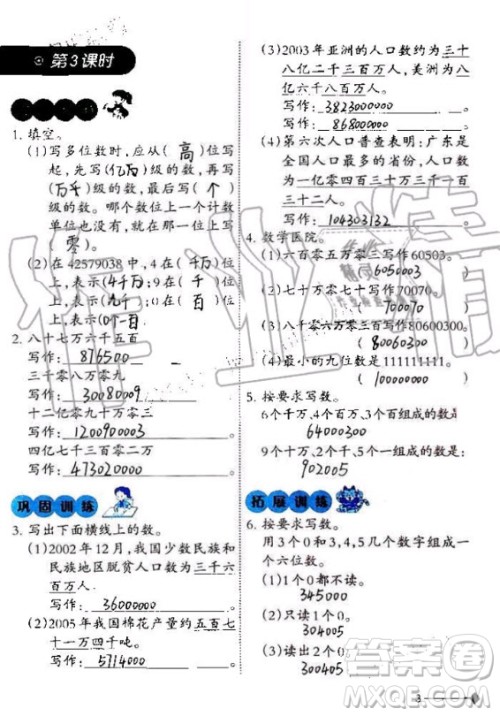 第3课时
1. 填空。
(1)写多位数时,应从(高)位写
起,先写(亿万)级的数,再写
(万千)级的数,最后写(个)
级的数。哪个数位上一个计数
单位也没有,就在那一位上写
(零)
(2)在42579038中,4在(千万)
位上,表示(4个千万);9在(千)
位上,表示(九千);0在(百)
位上,表示(0个百)。
2. 八十七万六千五百
写作: 876500
三千零八万零九
写作: 30080009
十二亿零九十万零三百
写作:
四亿七千三百零二万
写作: 473020000
巩固训练
3. 写出下面横线上的数。
(1)2002年12月,我国少数民族和
民族地区脱贫人口数为三千六
百万人。
写作: 36000000
(2)2005年我国棉花产量约五百七
十一万四千吨。
写作: 5714000
(3)2003年亚洲的人口数约为三十
八亿二千三百万人,美洲为八
亿六千八百万人。
写作: 3823000000
写作: 868000000
(4)第六次人口普查表明:广东是
全国人口最多的省份,人口数
为一亿零四百三十万三千一百
三十二人。
写作: 104303132
4. 数学医院。
(1)六百零五万零三写作60503。
(6050003)
(2)七十万零七十写作70070。
(700070)
(3)八千零六万零三百写作80600300。
(80060300)
(4)最小的九位数是111111111。
(100000000)
5. 按要求写数。
6个千万,4个百万,3个百组成的数:
64000300
9个十万,2个千,5个一组成的数是:
902005
拓展训练
6. 按要求写数。
用3个0和3,4,5几个数字组成一
个六位数。
(1)1个0都不读。
345000
(2)只读1个0。
304005
(3)读出2个0。
300405
答案圈
MXQE.COM